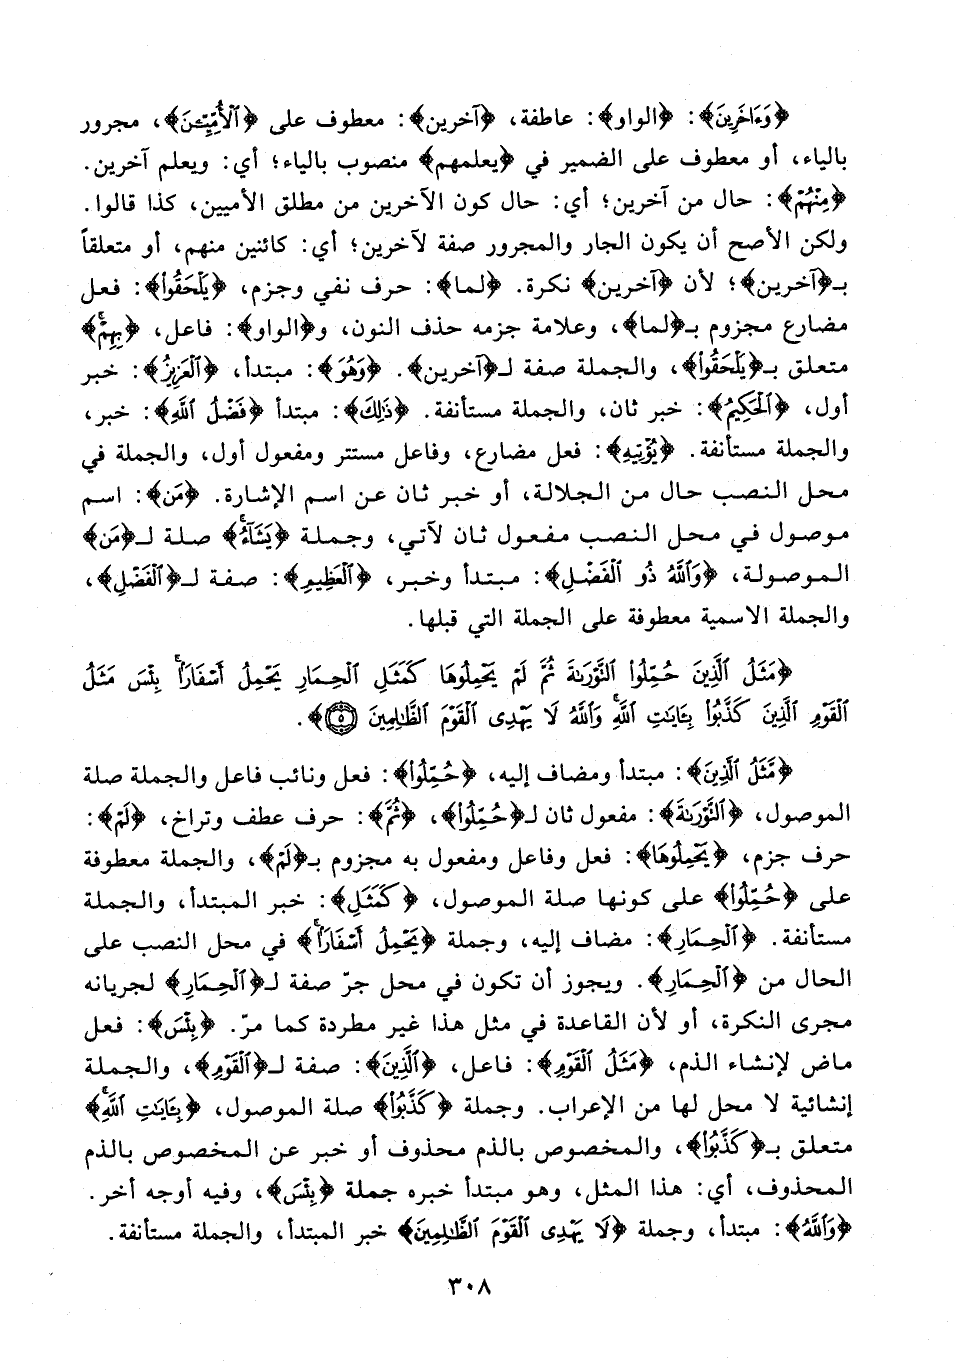 ﴿وَءَاخَرِينَ﴾: ﴿الواو﴾: عاطفة، ﴿آخرين﴾: معطوف على ﴿ٱلْأُمِّيِّـۧنَ﴾، مجرور
بالياء، أو معطوف على الضمير في ﴿يعلمهم﴾ منصوب بالياء؛ أي: ويعلم آخرين.
﴿مِنْهُمْ﴾: حال من آخرين؛ أي: حال كون الآخرين من مطلق الأميين، كذا قالوا.
ولكن الأصح أن يكون الجار والمجرور صفة لآخرين؛ أي: كائنين منهم، أو متعلقاً
بـ﴿آخرين﴾؛ لأن ﴿آخرين﴾ نكرة. ﴿لما﴾: حرف نفي وجزم، ﴿يَلْحَقُوا۟﴾: فعل
مضارع مجزوم بـ﴿لما﴾، وعلامة جزمه حذف النون، و﴿الواو﴾: فاعل، ﴿بِهِمْۚ﴾
متعلق بـ﴿يَلْحَقُوا۟﴾، والجملة صفة لـ﴿آخرين﴾. ﴿وَهُوَ﴾: مبتدأ، ﴿ٱلْعَزِيزُ﴾: خبر
أول، ﴿ٱلْحَكِيمُ﴾: خبر ثان، والجملة مستأنفة. ﴿ذَٰلِكَ﴾: مبتدأ ﴿فَضْلُ ٱللَّهِ﴾: خبر،
والجملة مستأنفة. ﴿يُؤْتِيهِ﴾: فعل مضارع، وفاعل مستتر ومفعول أول، والجملة في
محل النصب حال من الجلالة، أو خبر ثان عن اسم الإشارة. ﴿مَن﴾: اسم
موصول في محل النصب مفعول ثان لآتي، وجملة ﴿يَشَآءُۚ﴾ صلة لـ﴿مَن﴾
الموصولة، ﴿وَٱللَّهُ ذُو ٱلْفَضْلِ﴾: مبتدأ وخبر، ﴿ٱلْعَظِيمِ﴾: صفة لـ﴿ٱلْفَضْلِ﴾،
والجملة الاسمية معطوفة على الجملة التي قبلها.
﴿مَثَلُ ٱلَّذِينَ حُمِّلُوا۟ ٱلتَّوْرَىٰةَ ثُمَّ لَمْ يَحْمِلُوهَا كَمَثَلِ ٱلْحِمَارِ يَحْمِلُ أَسْفَارًاۚ بِئْسَ مَثَلُ
ٱلْقَوْمِ ٱلَّذِينَ كَذَّبُوا۟ بِـَٔايَـٰتِ ٱللَّهِۚ وَٱللَّهُ لَا يَهْدِى ٱلْقَوْمَ ٱلظَّـٰلِمِينَ ٥﴾.
﴿مَثَلُ ٱلَّذِينَ﴾: مبتدأ ومضاف إليه، ﴿حُمِّلُوا۟﴾: فعل ونائب فاعل والجملة صلة
الموصول، ﴿ٱلتَّوْرَىٰةَ﴾: مفعول ثان لـ﴿حُمِّلُوا۟﴾، ﴿ثُمَّ﴾: حرف عطف وتراخ، ﴿لَمْ﴾:
حرف جزم، ﴿يَحْمِلُوهَا﴾: فعل وفاعل ومفعول به مجزوم بـ﴿لَمْ﴾، والجملة معطوفة
على ﴿حُمِّلُوا۟﴾ على كونها صلة الموصول، ﴿كَمَثَلِ﴾: خبر المبتدأ، والجملة
مستأنفة. ﴿ٱلْحِمَارِ﴾: مضاف إليه، وجملة ﴿يَحْمِلُ أَسْفَارًاۚ﴾ في محل النصب على
الحال من ﴿ٱلْحِمَارِ﴾. ويجوز أن تكون في محل جرّ صفة لـ﴿ٱلْحِمَارِ﴾ لجريانه
مجرى النكرة، أو لأن القاعدة في مثل هذا غير مطردة كما مرّ. ﴿بِئْسَ﴾: فعل
ماض لإنشاء الذم، ﴿مَثَلُ ٱلْقَوْمِ﴾: فاعل، ﴿ٱلَّذِينَ﴾: صفة لـ﴿ٱلْقَوْمِ﴾، والجملة
إنشائية لا محل لها من الإعراب. وجملة ﴿كَذَّبُوا۟﴾ صلة الموصول، ﴿بِـَٔايَـٰتِ ٱللَّهِۚ﴾
متعلق بـ﴿كَذَّبُوا۟﴾، والمخصوص بالذم محذوف أو خبر عن المخصوص بالذم
المحذوف، أي: هذا المثل، وهو مبتدأ خبره جملة ﴿بِئْسَ﴾، وفيه أوجه أخر.
﴿وَٱللَّهُ﴾: مبتدأ، وجملة ﴿لَا يَهْدِى ٱلْقَوْمَ ٱلظَّـٰلِمِينَ﴾ خبر المبتدأ، والجملة مستأنفة.
٣٠٨